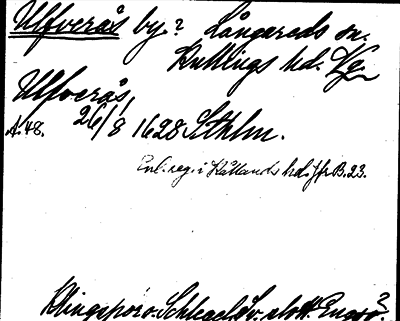 Ulfverås by? Långareds sn.
Kullings hd. Vg.
Ulfverås,
A:48. 26/8 1628 Sthlm.
Enl. reg. i Kållands hd. Jfr B.23.
Klingspor o. Schlegel: Sv. slott. Engsö?